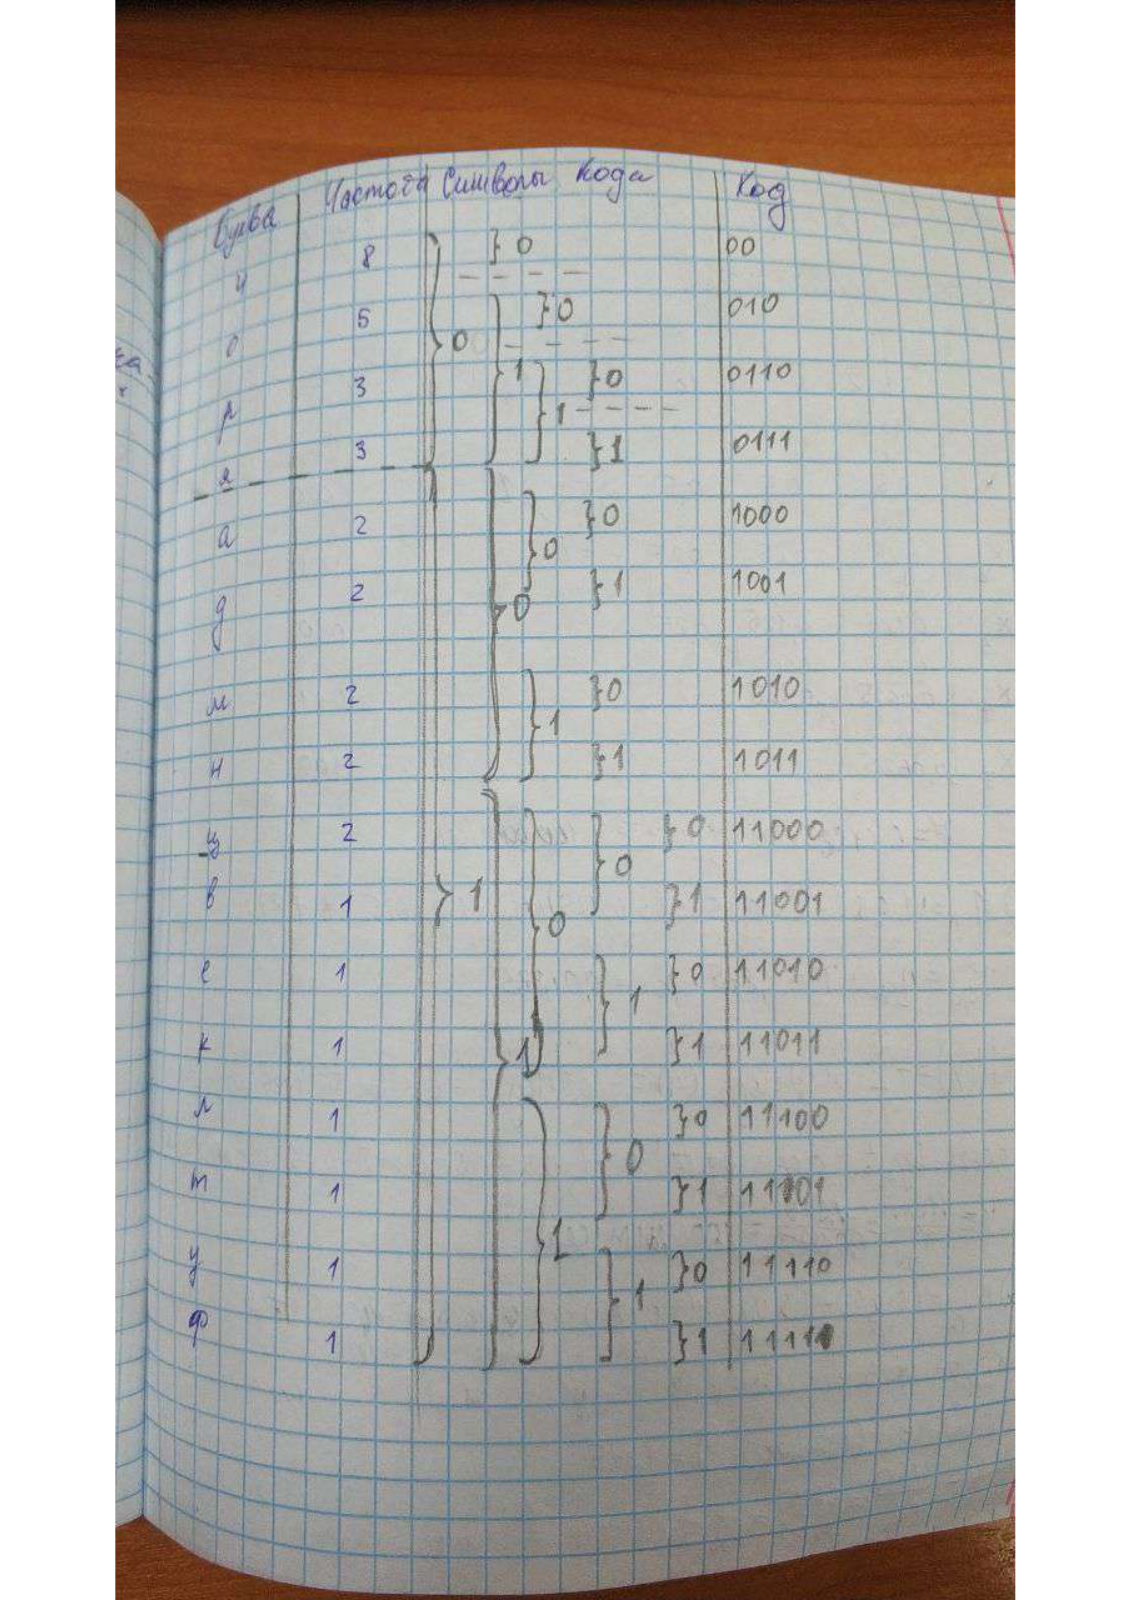 Буква Частота Символы Кода Код
и 8 } 0 00
о 5 } 0 010
0 1
р 3 } 0 0110
1
я 3 } 1 0111
а 2 } 0 1000
0
д 2 } 1 1001
0
м 2 } 0 1010
1
н 2 } 1 1011
ц 2 } 0 11000
0
в 1 } 1 } 1 11001
0
е 1 } 0 11010
1
к 1 1 } 1 11011
л 1 } 0 11100
0
т 1 } 1 11101
1
у 1 } 0 11110
1
ф 1 } 1 11111